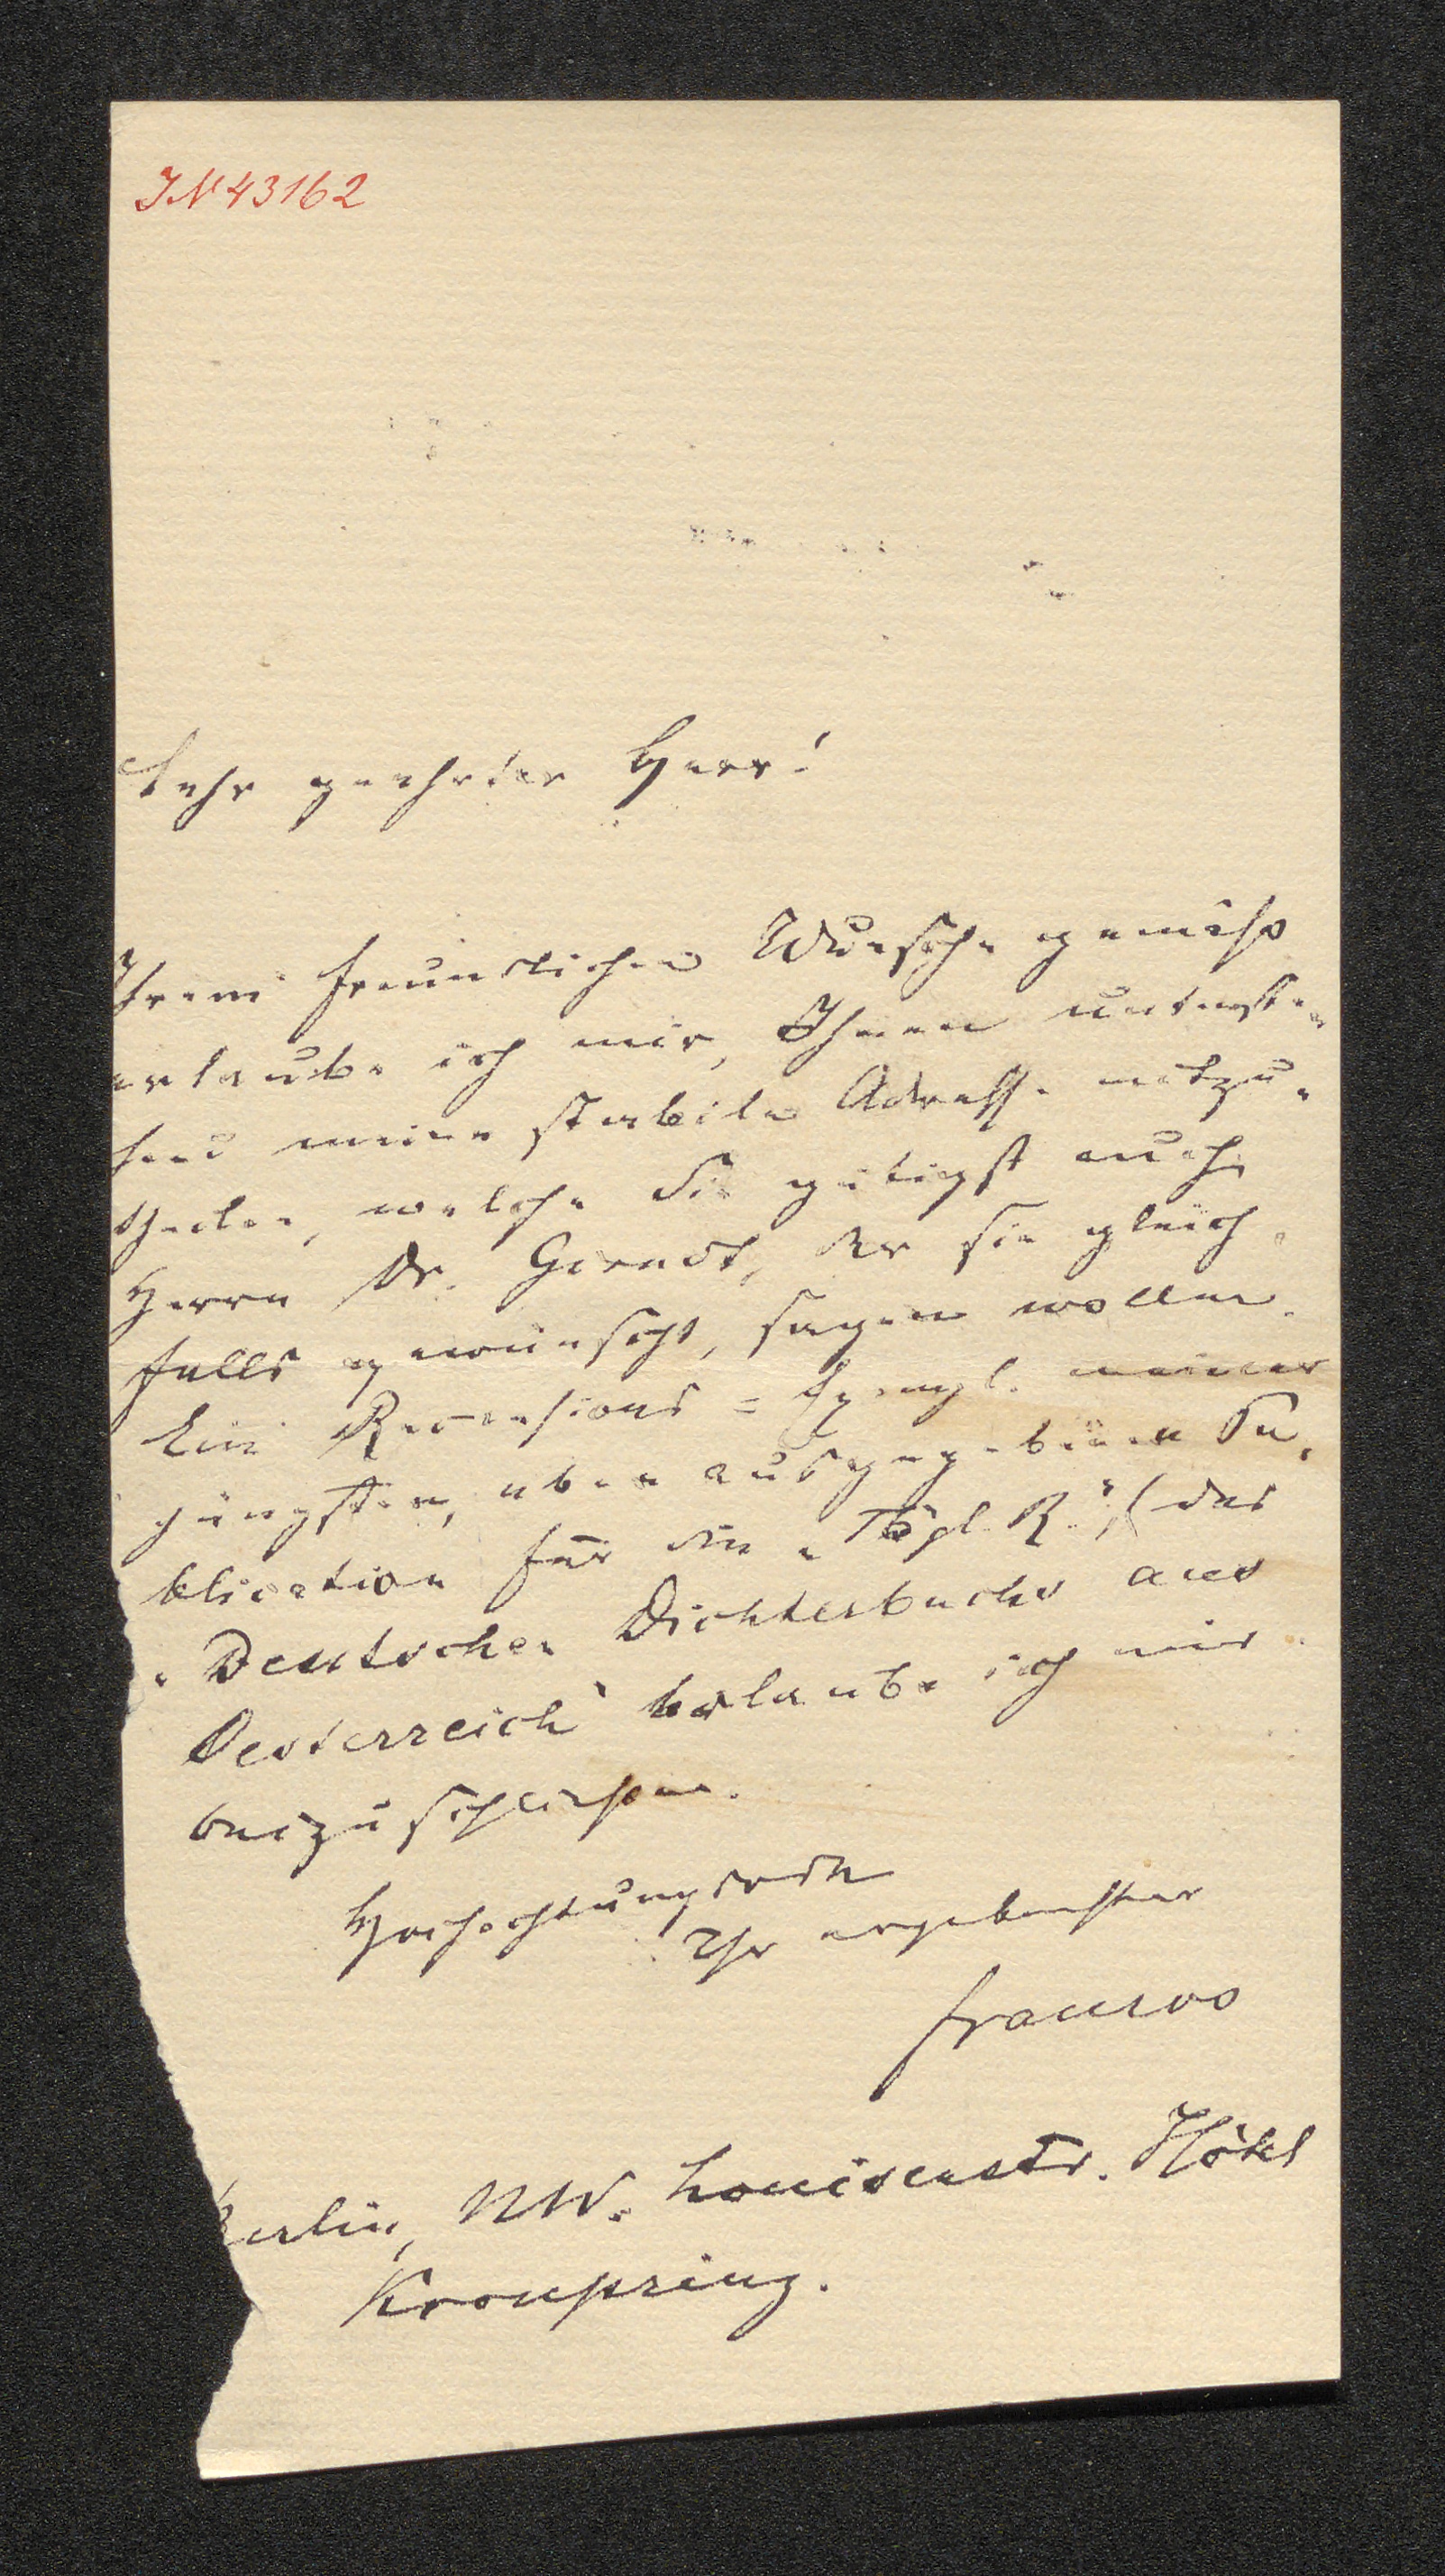 IN 43162
Sehr geehrter Herr!
Ihrem freundlichen Wunsche gemäß
erlaube ich mir, Ihnen unterste-
hend meine stabile Adresse mitzu-
theilen, welche Sie gütigst auch
Herrn Dr. , der sie gleich-
falls gewünscht, sagen wollen.
Ein Recensions-Exempl. meiner
jüngsten, eben ausgegebenen Pu-
blication für die „Tägl. R.“, (des
„Deutschen Dichterbuchs aus
Oesterreich“ erlaube ich mir
beizuschließen.
Hochachtungsvoll
Ihr ergebenster
Franzos
Berlin, NW. Louisenstr. Hôtel
Kronprinz.